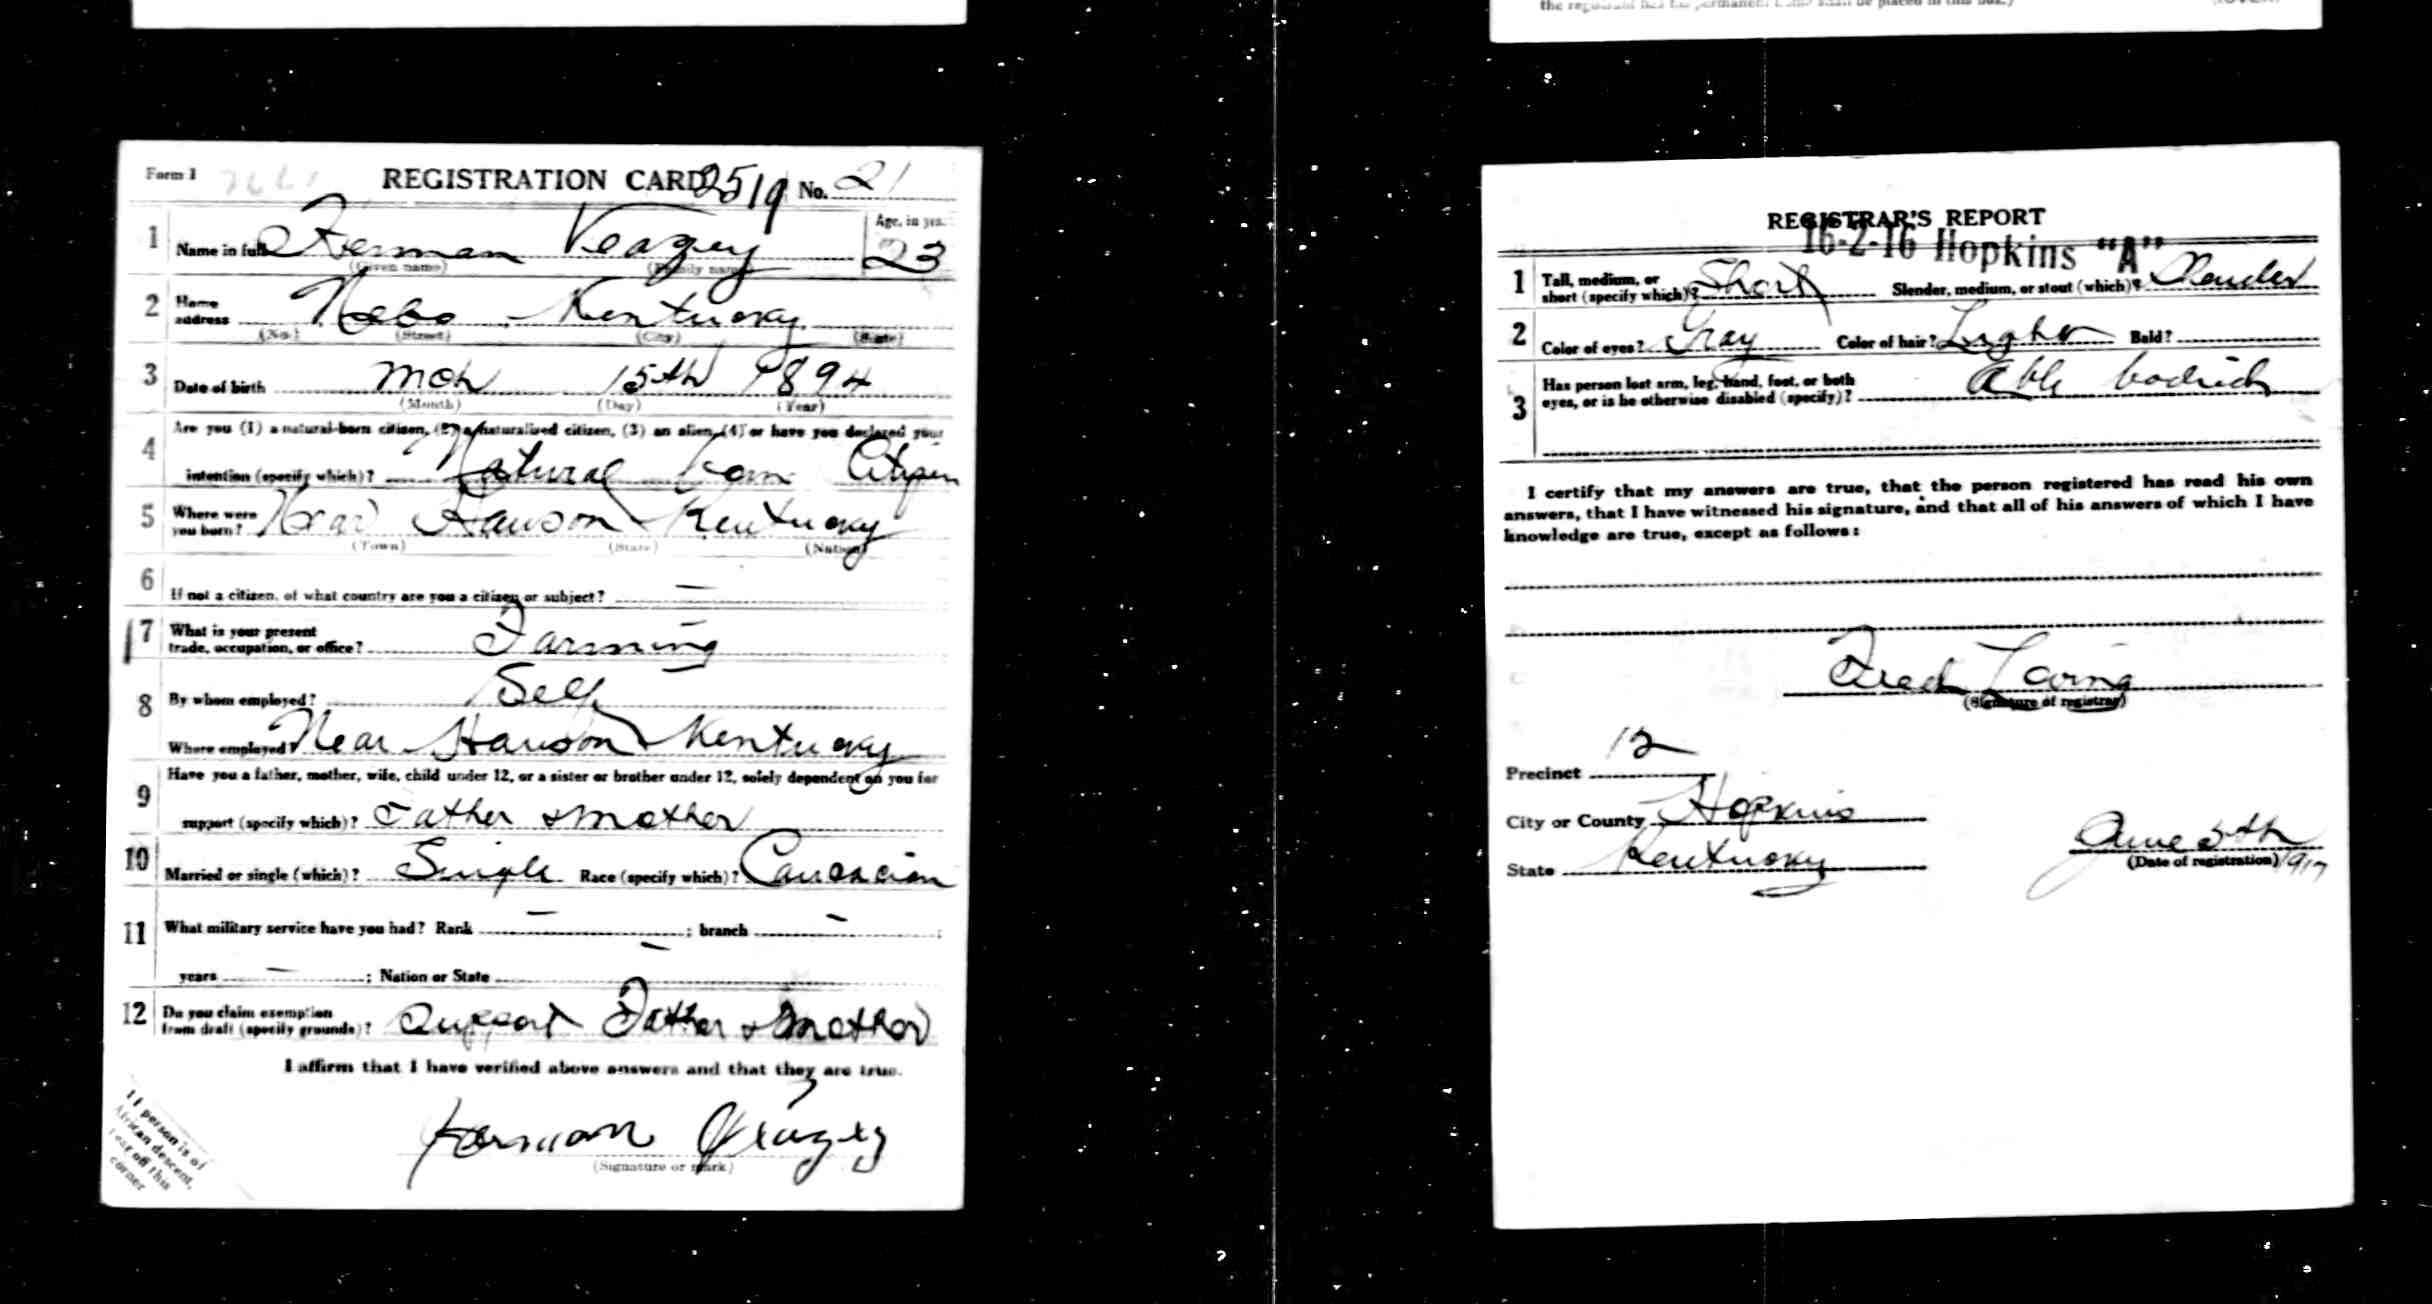 the registrant has
(OVER)
Form 1 REGISTRATION CARD 2519 No. 21
1 Name in full Herman Veazey Age, in yrs. 23
(Given name) (Family name)
2 Home address Nebo Kentucky
(No.) (Street) (City) (State)
3 Date of birth Mch 15th 1894
(Month) (Day) (Year)
4 Are you (1) a natural-born citizen, (2) a naturalized citizen, (3) an alien, (4) or have you declared your
intention (specify which)? Natural born Citizen
5 Where were you born? Near Hanson Kentucky
(Town) (State) (Nation)
6 If not a citizen, of what country are you a citizen or subject? —
7 What is your present trade, occupation, or office? Farming
8 By whom employed? Self
Where employed? Near Hanson Kentucky
9 Have you a father, mother, wife, child under 12, or a sister or brother under 12, solely dependent on you for
support (specify which)? Father & Mother
10 Married or single (which)? Single Race (specify which)? Caucasian
11 What military service have you had? Rank — ; branch — ;
years — ; Nation or State —
12 Do you claim exemption from draft (specify grounds)? Support Father & Mother
I affirm that I have verified above answers and that they are true.
Herman Veazey
(Signature or mark)
If person is of
African descent,
tear off this
corner
REGISTRAR'S REPORT
16-2-16 Hopkins "A"
1 Tall, medium, or short (specify which)? Short Slender, medium, or stout (which)? Slender
2 Color of eyes? Gray Color of hair? Light Bald?
3 Has person lost arm, leg, hand, foot, or both
eyes, or is he otherwise disabled (specify)? Able bodied
I certify that my answers are true, that the person registered has read his own
answers, that I have witnessed his signature, and that all of his answers of which I have
knowledge are true, except as follows:
Loving
(Signature of registrar)
Precinct 12
City or County Hopkins
State Kentucky
June 5th 1917
(Date of registration)